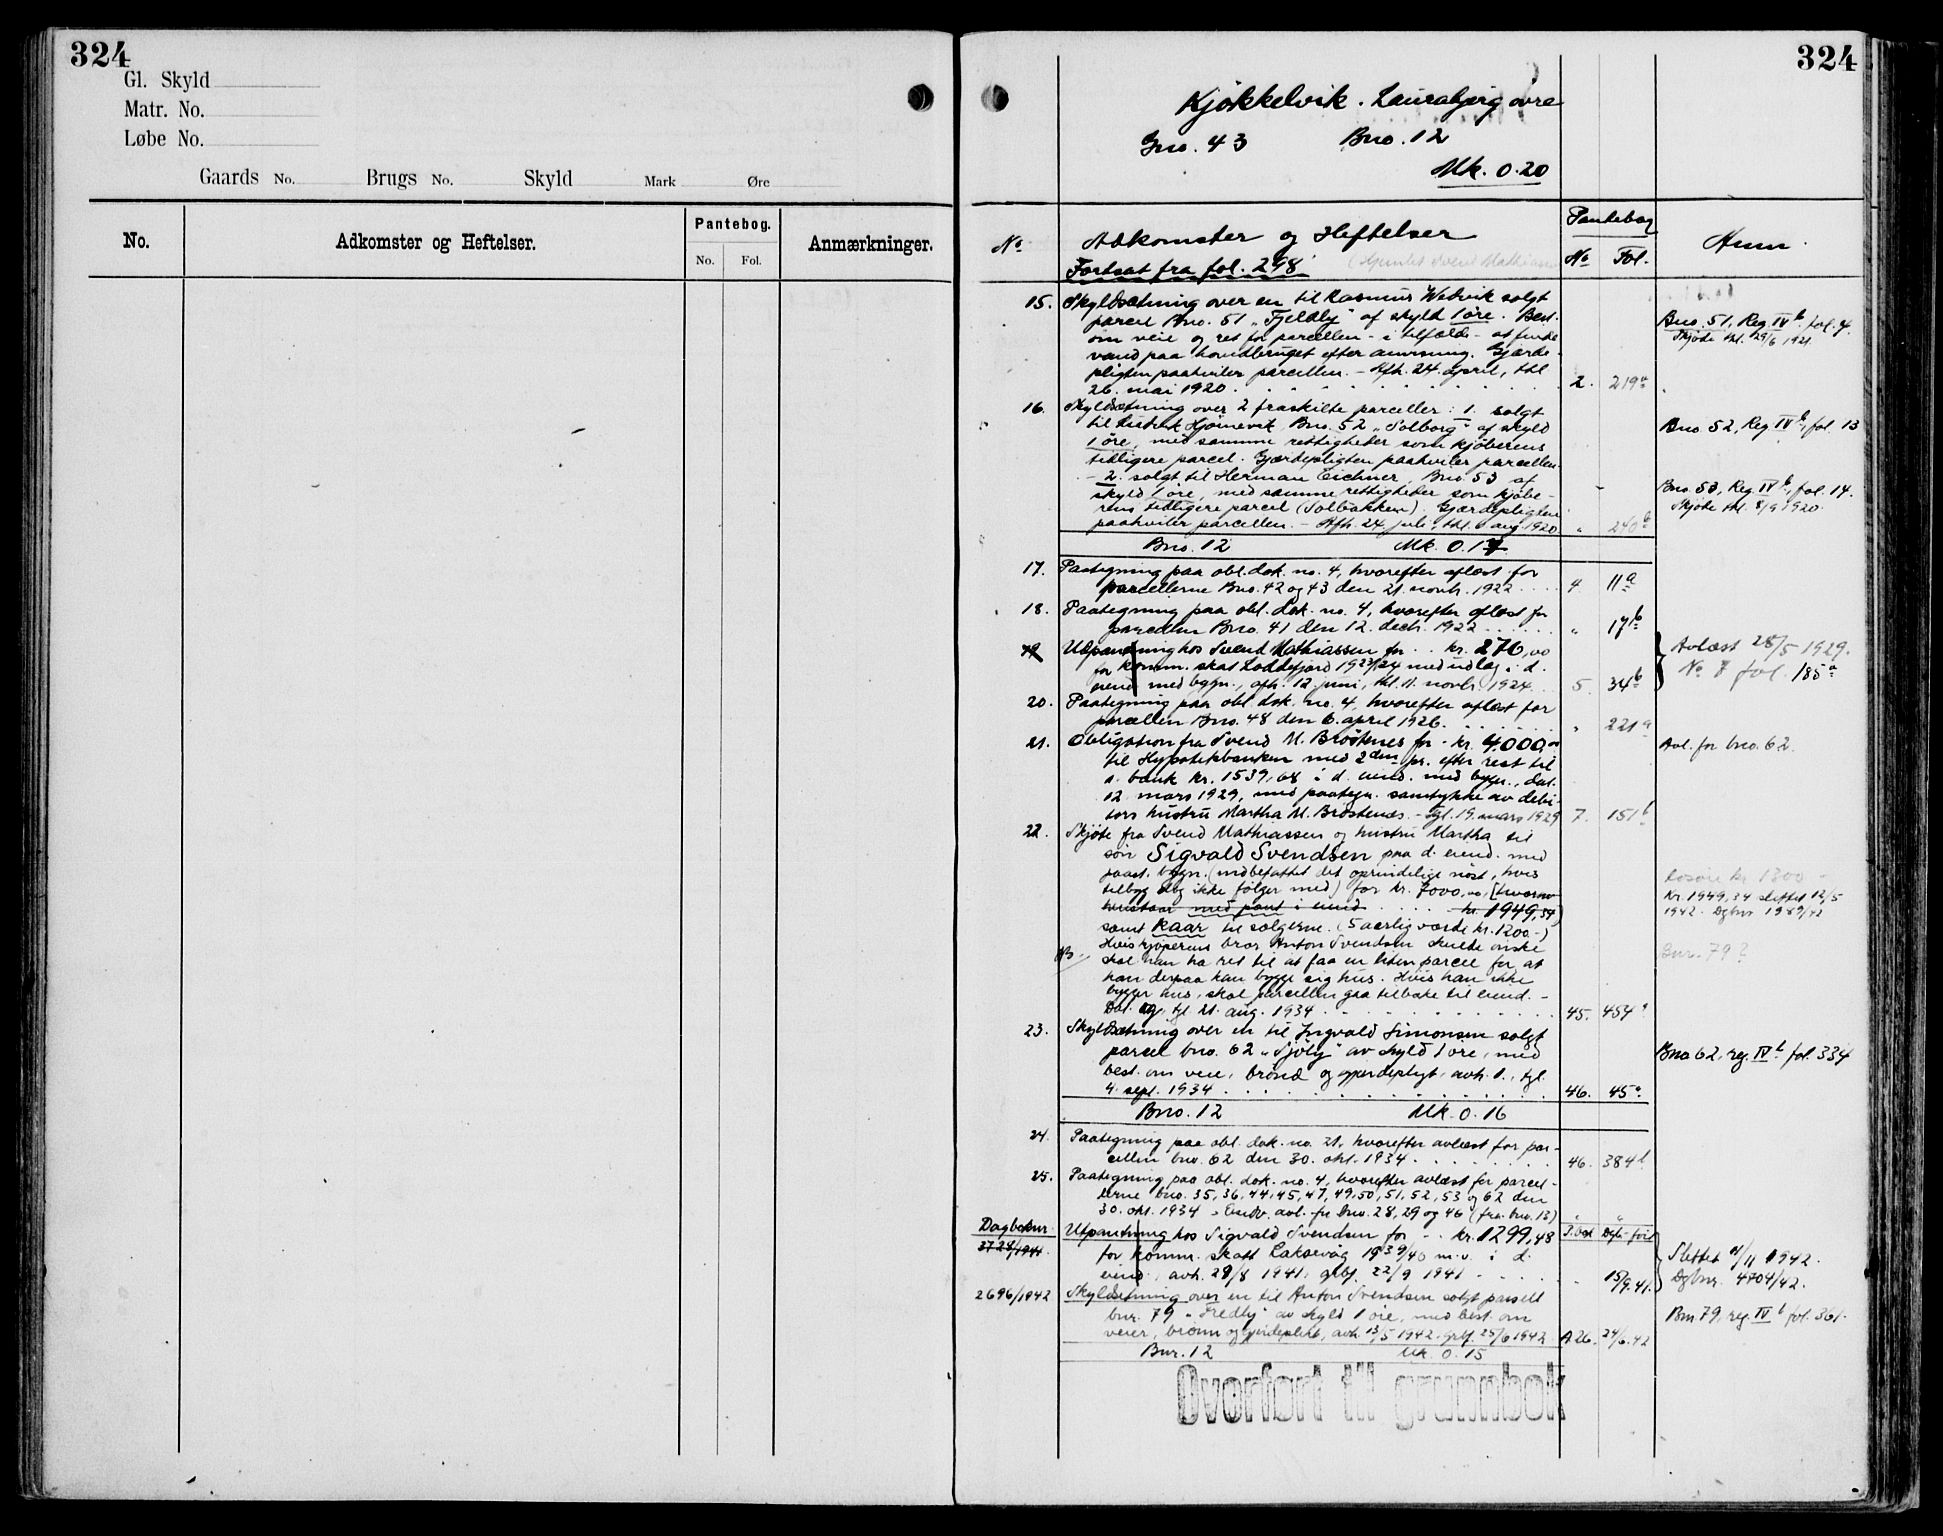 324
Gl. Skyld
Matr. No.
Løbe No.
Gaards No. Brugs No. Skyld Mark Øre
No. Adkomster og Heftelser. Pantebog. Anmærkninger.
No. Fol.
324
Kjøkkelvik. Laurabjerg øvre
Gno. 43 Bno. 12
Mk. 0.20
No Adkomster og Heftelser Pantebog Anm.
Fortsat fra fol. 298. No Fol.
15. Skyldsætning over en til Rasmus Wedvik solgt
parcel Bno. 51 „Fjeldly" af skyld 1 øre. Best.
om veie og ret for parcellen - i tilfælde - at finde
vand paa hovedbruget efter anvisning. Gjærde-
pligten paahviler parcellen. - Afh. 24. april, thl
26. mai 1920 2. 219a
Bno. 51, Reg IVb, fol. 4.
Skjøte thl. 29/6 1921.
16. Skyldsætning over 2 fraskilte parceller: 1. solgt
til Hjørnevik Bno. 52 „Solborg" af skyld
1 øre, med samme rettigheder som kjøberens
tidligere parcel. Gjærdepligten paahviler parcellen.
- 2. solgt til Herman Eichner, Bno 53 af
skyld 1 øre, med samme rettigheder som kjøbe-
rens tidligere parcel (Solbakken). Gjærdepligten
paahviler parcellen. - Afh. 24. juli, thl. 6 aug. 1920 " 240b
Bno 52, Reg IVb, fol. 13
Bno. 53, Reg. IVb, fol. 14.
Skjøte thl. 8/9 1920.
Bno. 12 Mk. 0.17
17. Paategning paa obl. dok. no. 4, hvorefter aflæst for
parcellerne Bno. 42 og 43 den 21. novbr. 1922 4 11a
18. Paategning paa obl. dok. no. 4, hvorefter aflæst for
parcellen Bno. 41 den 12. decbr. 1922 " 17b
19. Udpantning hos Svend Mathiassen for kr. 276,00
for komm. skat Loddefjord 1923/24 med udlæg i d.
eiend. med bygn., afh. 12. juni, thl. 11. novbr. 1924. 5. 34b
Avlæst 28/5-1929.
No 7 fol. 185a
20. Paategning paa obl. dok. no. 4, hvorefter aflæst for
parcellen Bno. 48 den 6. april 1926. " 221a
21. Obligation fra Svend M. Brøstenes for kr. 4000,00
til Hypotekbanken med 2den pr. efter rest til
s. bank kr. 1539,68 i d. eiend. med bygn., dat.
12. mars 1929, med paategn. samtykke av debi-
tors hustru Martha M. Brøstenes. - Tgl. 19. mars 1929 7. 151b
Avl. for bno. 62.
22. Skjøte fra Svend Mathiassen og hustru Martha til
søn Sigvald Svendsen paa d. eiend. med
paast. bygn. (indbefattet det oprindelige nøst, hvis
tilbygg dog ikke følger med) for kr. 7000,00, [hvorav
med pant i eiend. kr. 1949,34]
samt kaar til sælgerne. (5 aarlig værdi kr. 1200.-)
Hvis kjøperens bror Anton Svendsen skulde ønske
NB. skal han ha ret til at faa en liten parcel for at
han derpaa kan bygge sig hus. Hvis han ikke
bygger hus, skal parcellen gaa tilbake til eiend. -
Dat. og tgl. 21. aug. 1934 45. 454a
Løsøre kr 1300 -
Kr. 1949,34 slettet 12/5
1942. Dgbnr 1989/42
Bnr. 79?
23. Skyldsætning over en til Ingvald Simonsen solgt
parcel bno. 62 „Sjøly" av skyld 1 øre, med
best. om veie, brønd og gjerdepligt, avh. 1., tgl.
4. sept. 1934 46. 45a
Bno 62, reg. IVb fol. 334
Bno. 12 Mk. 0.16
24. Paategning paa obl. dok. no. 21, hvorefter avlæst for par-
cellen bno. 62 den 30. okt. 1934 46. 384b
25. Paategning paa obl. dok. no. 4, hvorefter avlæst for parcel-
lerne bno. 35, 36, 44, 45, 47, 49, 50, 51, 52, 53 og 62 den
30. okt. 1934. Endv. avl. for bno. 28, 29 og 46 (fra bno. 13) " "
Dagboknr.
3728/1941 Utpantning hos Sigvald Svendsen for kr. 1299,48
for komm. skatt Laksevåg 1939/40 m.v. i d.
eiend., avh. 29/8 1941, 22/9 1941 " 15/9.41.
Slettet 11/11 1942.
Dgbnr. 4704/42.
2696/1942 Skyldsetning over en til Anton Svendsen solgt parsell
bnr. 79 „Fredly" av skyld 1 øre, med best. om
veier, brønn og gjerdeplikt, avh. 13/5 1942, 25/6 1942 A 26. 24/6.42
Bnr. 79, reg. IVb fol. 361.
Bnr. 12 Mk. 0.15
Overført til grunnbok